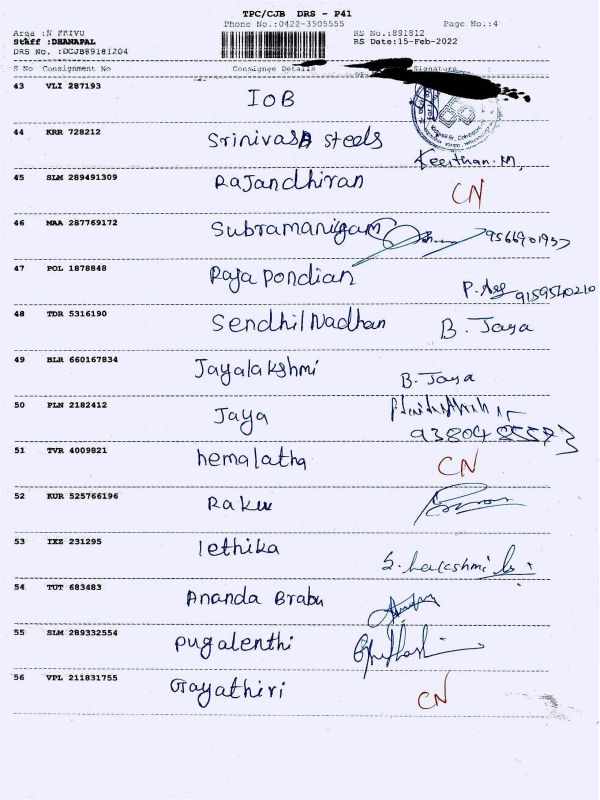 TPC/CJB DRS - P41
Phone No.:0422-3505555 Page No.:4
Area :N PRIVU RS No.:891812
Staff :DHANAPAL RS Date:15-Feb-2022
DRS No. :DCJB89181204
S No Consignment No Consignee Details Signature
43 VLI 287193 IOB
44 KRR 728212 Srinivasa steels Keerthan.M,
45 SLM 289491309 Rajandhiran CN
46 MAA 287769172 Subramanigam
47 POL 1878848 Raja pondian 9159540210
48 TDR 5316190 Sendhil Nadhan B. Jaya
49 BLR 660167834 Jayalakshmi B. Jaya
50 PLN 2182412 Jaya
51 TVR 4009821 hemalatha CN
52 KUR 525766196
53 IXZ 231295 lethika S. Lakshmi
54 TUT 683483 Ananda Brabu
55 SLM 289332554 pugalenthi
56 VPL 211831755 Gayathiri CN